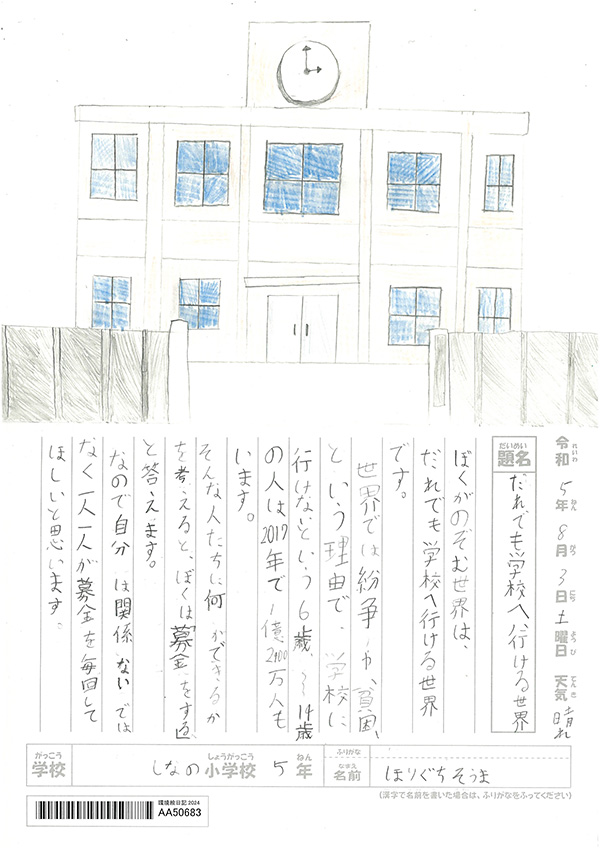 令和5年8月3日土曜日 天気 晴れ
れいわ ねん がつ にち ようび てんき
だいめい
題名 だれでも学校へ、行ける世界
ぼくがのぞむ世界は、
だれでも学校へ行ける世界
です。
世界では紛争や、貧困、
という理由で、学校に
行けないという6歳、~14歳
の人は2017年で1億2400万人も
います。
そんな人たちに何ができるか
を考えると、ぼくは「募金をする」
と答えます。
なので自分は関係ないでは
なく一人一人が募金を毎回して
ほしいと思います。
がっこう しょうがっこう ねん
学校 しなの小学校 5年
ふりがな
なまえ
名前 ほりぐちそうま
(漢字で名前を書いた場合は、ふりがなをふってください)
環境絵日記 2024
AA50683